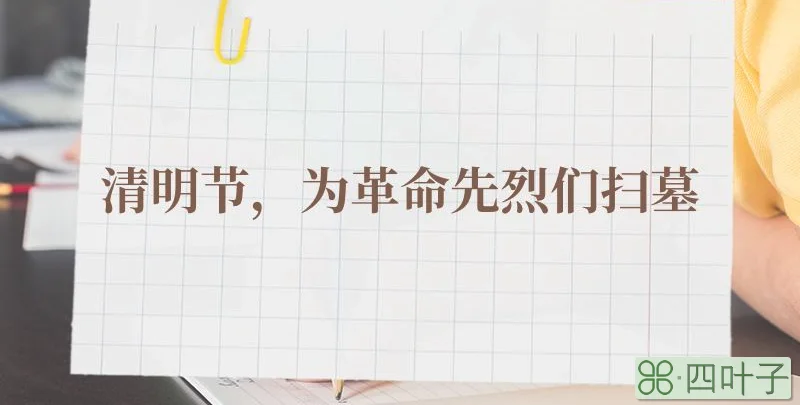 清明节，为革命先烈们扫墓
四叶子